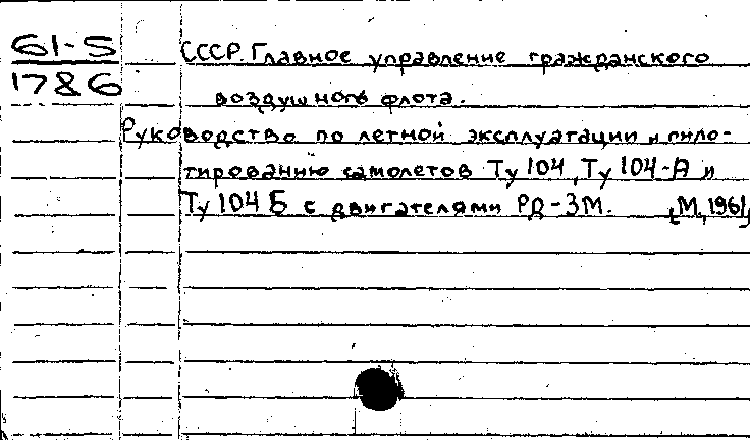 61-5
1786
СССР. Главное управление гражданского
воздушного флота.
Руководство по летной эксплуатации и пило-
тированию самолетов Ту 104, Ту 104-А и
Ту 104 Б с двигателями РД-3М. [М., 1961]